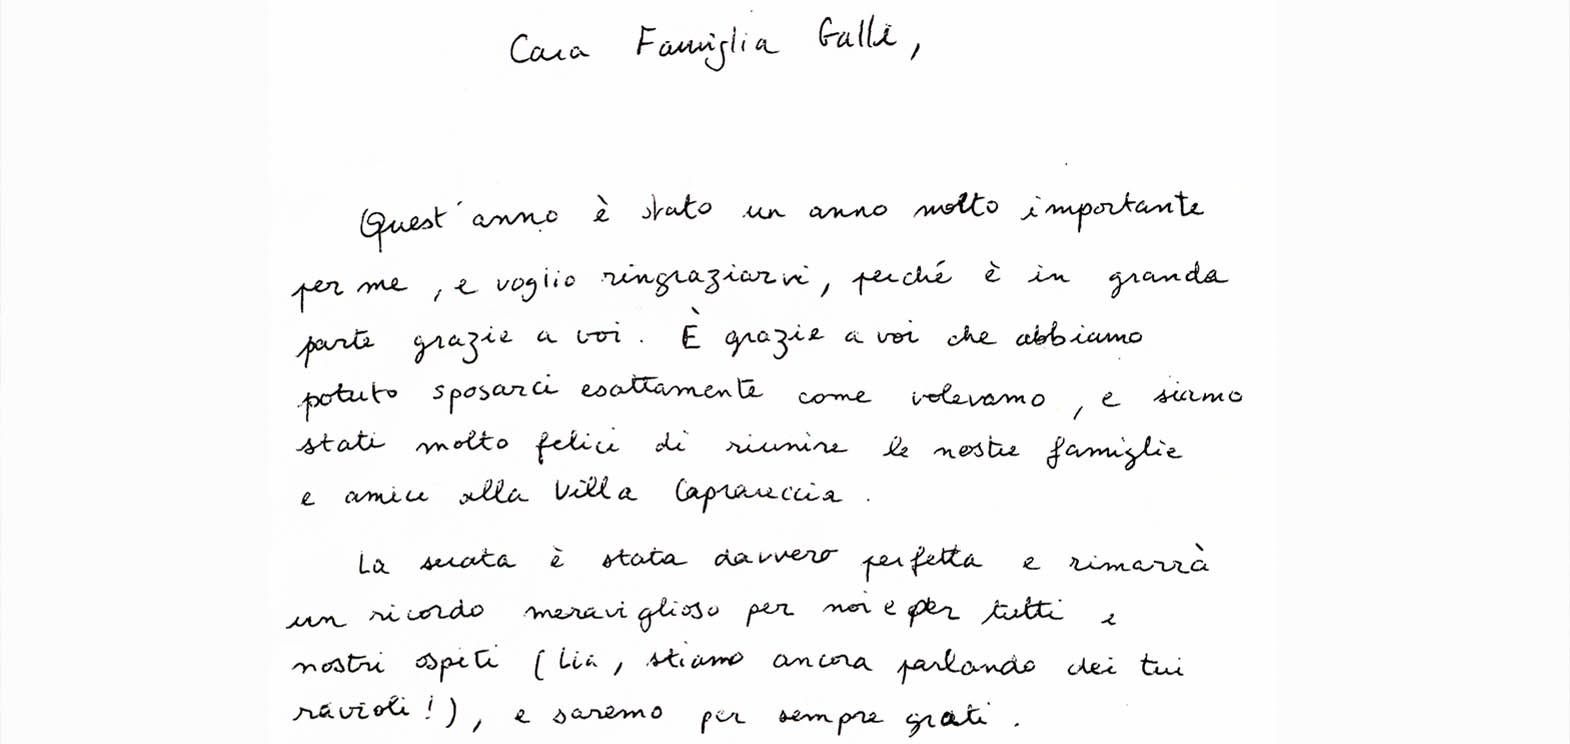 Cara Famiglia Galli,
Quest'anno è stato un anno molto importante
per me, e voglio ringraziarvi, perché è in grande
parte grazie a voi. È grazie a voi che abbiamo
potuto sposarci esattamente come volevamo, e siamo
stati molto felici di riunire le nostre famiglie
e amici alla Villa Caprareccia.
La serata è stata davvero perfetta e rimarrà
un ricordo meraviglioso per noi e per tutti i
nostri ospiti (Lia, stiamo ancora parlando dei tui
ravioli!), e saremo per sempre grati.